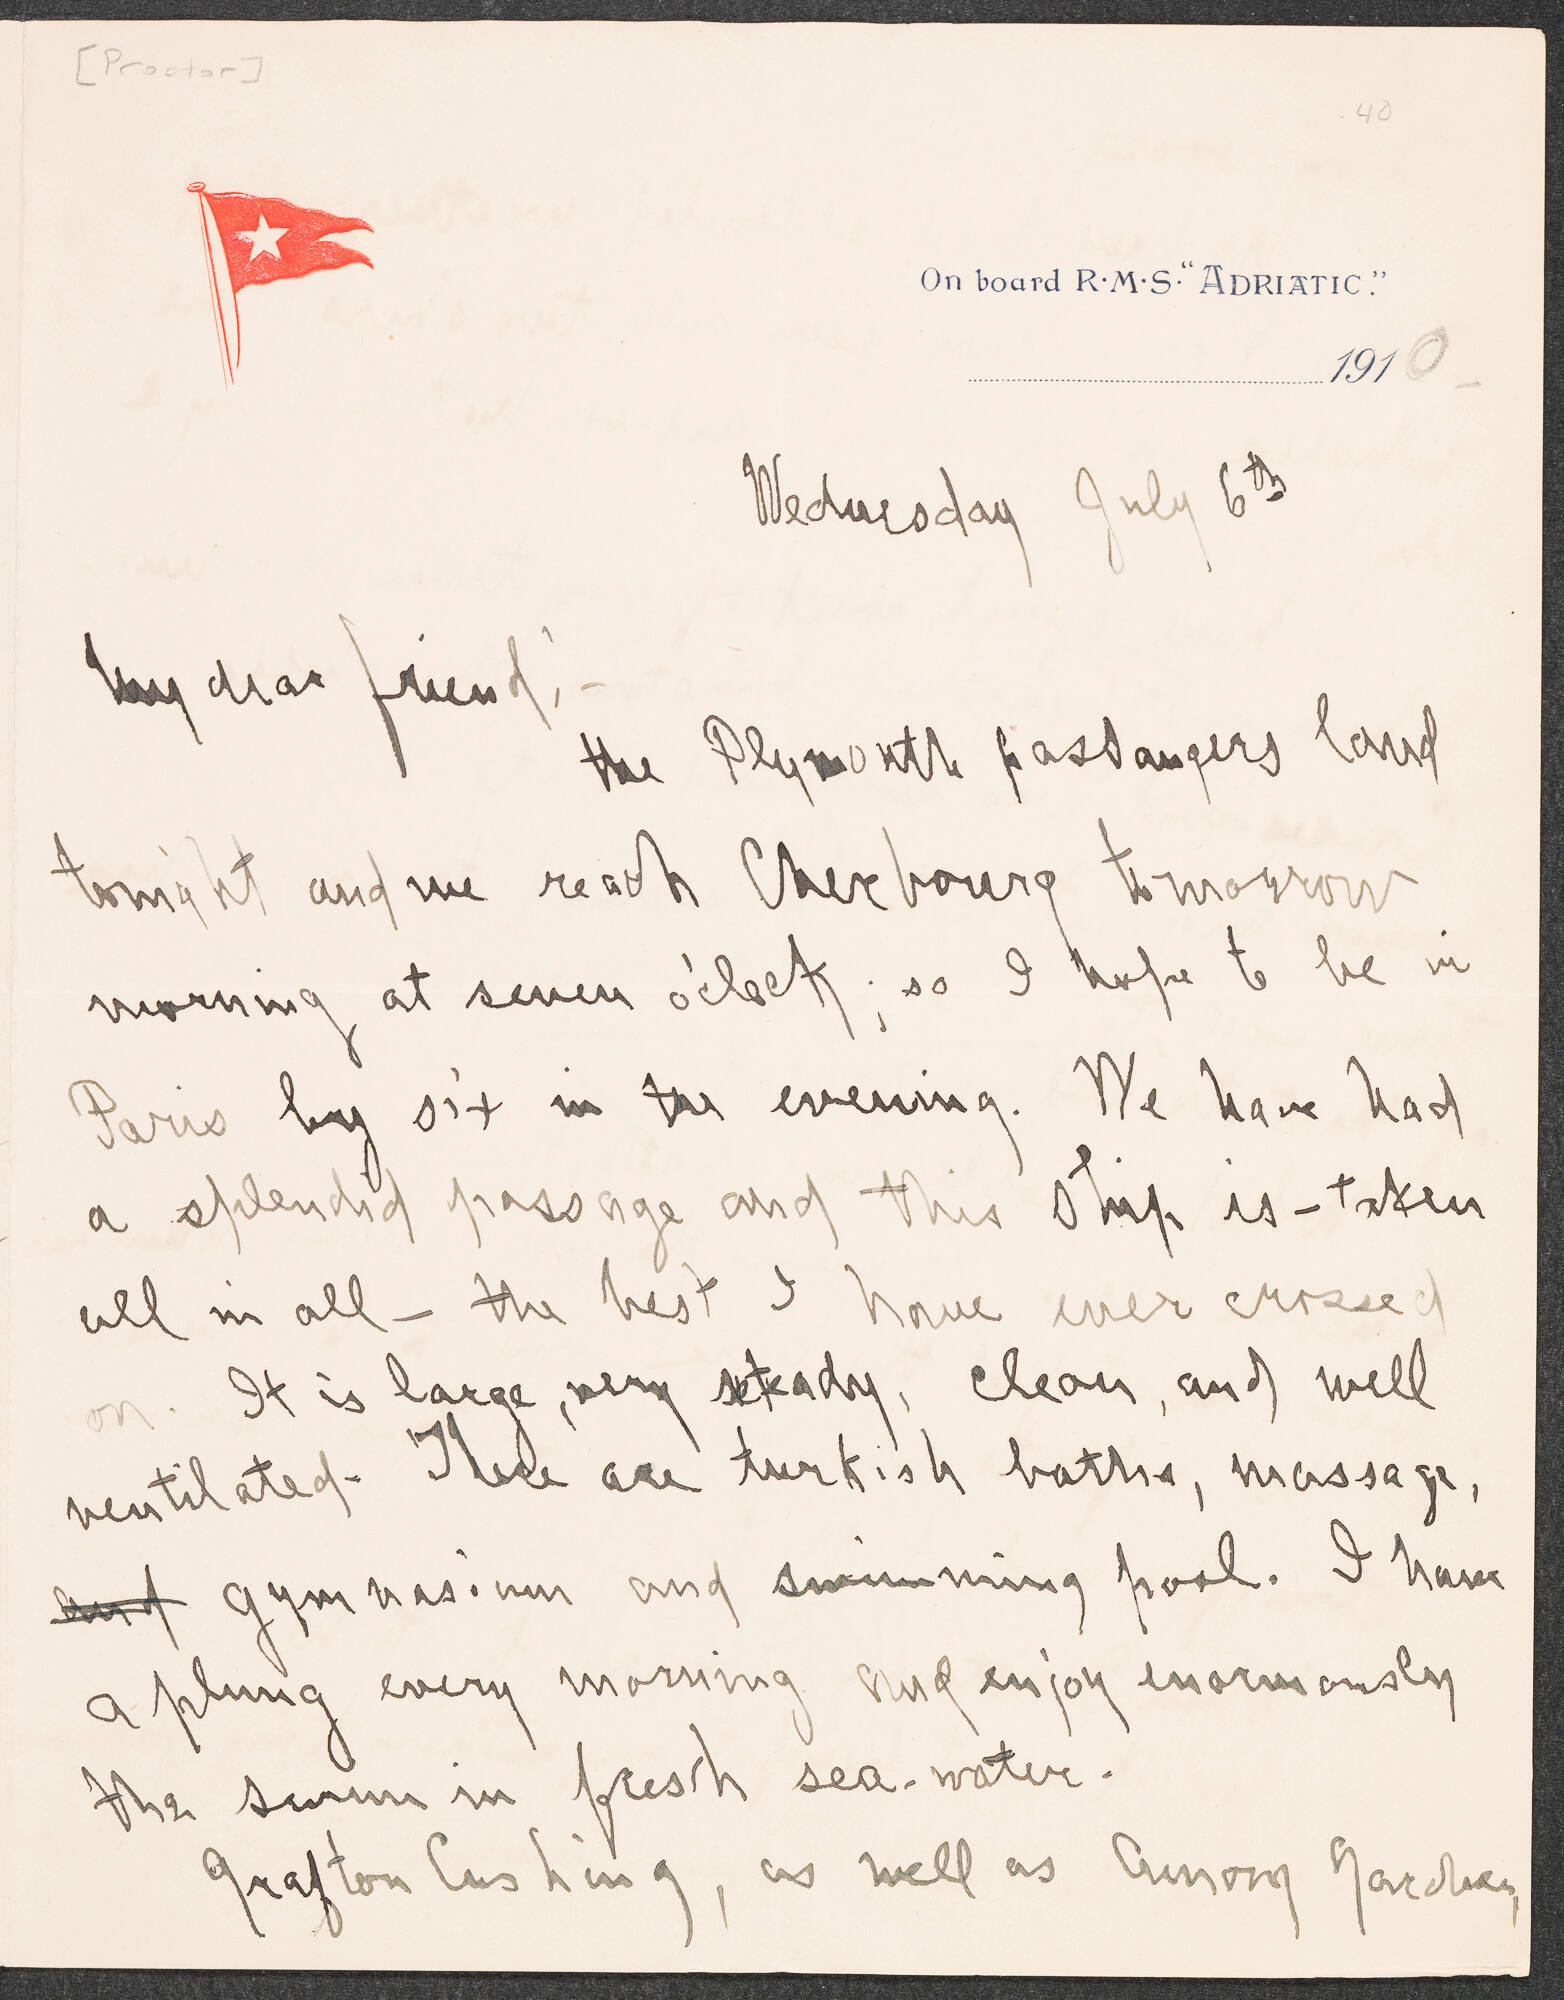 [Proctor]
40
On board R·M·S· "ADRIATIC."
1910
Wednesday July 6th
My dear friend,-
the Plymouth passangers land
tonight and we reach Cherbourg tomorrow
morning at seven o'clock; so I hope to be in
Paris by six in the evening. We have had
a splendid passage and this ship is - taken
all in all - the best I have ever crossed
on. It is large, very steady, clean, and well
ventilated. There are turkish baths, massage,
and gymnasium and swimming pool. I have
a plung every morning and enjoy enormously
the swim in fresh sea-water.
Grafton Cushing, as well as Amory Gardner,